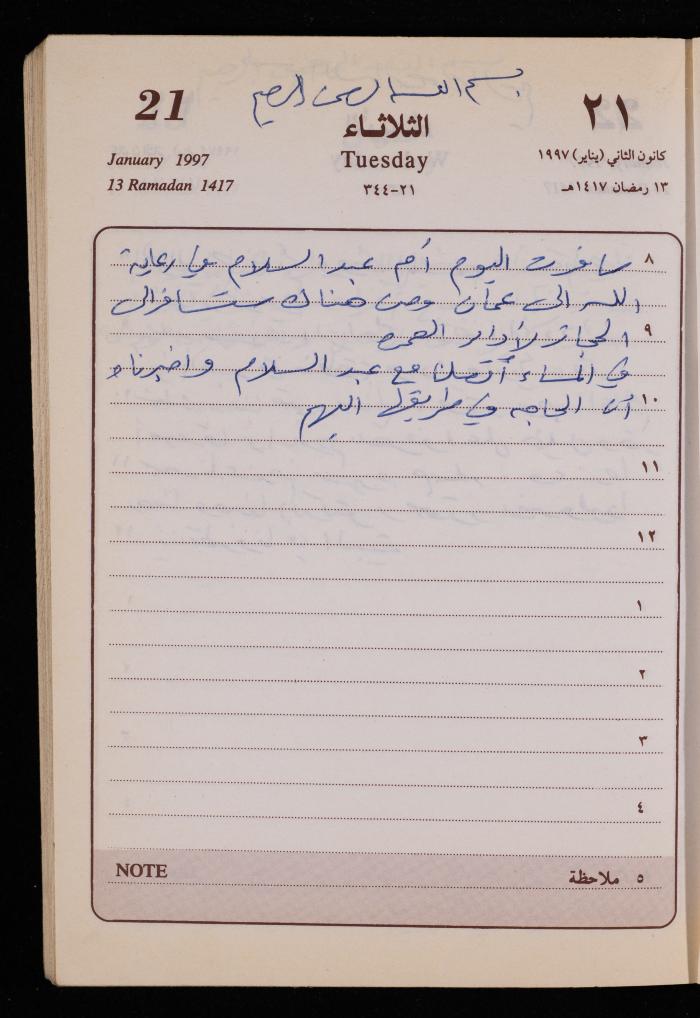 بسم الله الرحمن الرحيم
21
الثلاثاء
٢١
January 1997
Tuesday
كانون الثاني (يناير) ١٩٩٧
13 Ramadan 1417
٢١-٣٤٤
١٣ رمضان ١٤١٧هـ
٨ سافرت اليوم أم عبد السلام في رعاية
الله الى عمان ومن هناك ستسافر الى
٩ الحجاز لأداء العمره
في المساء أتصلنا مع عبد السلام واخبرناه
١٠ أن الحاجه في طريقها اليهم
١١
١٢
١
٢
٣
٤
NOTE
٥ ملاحظة